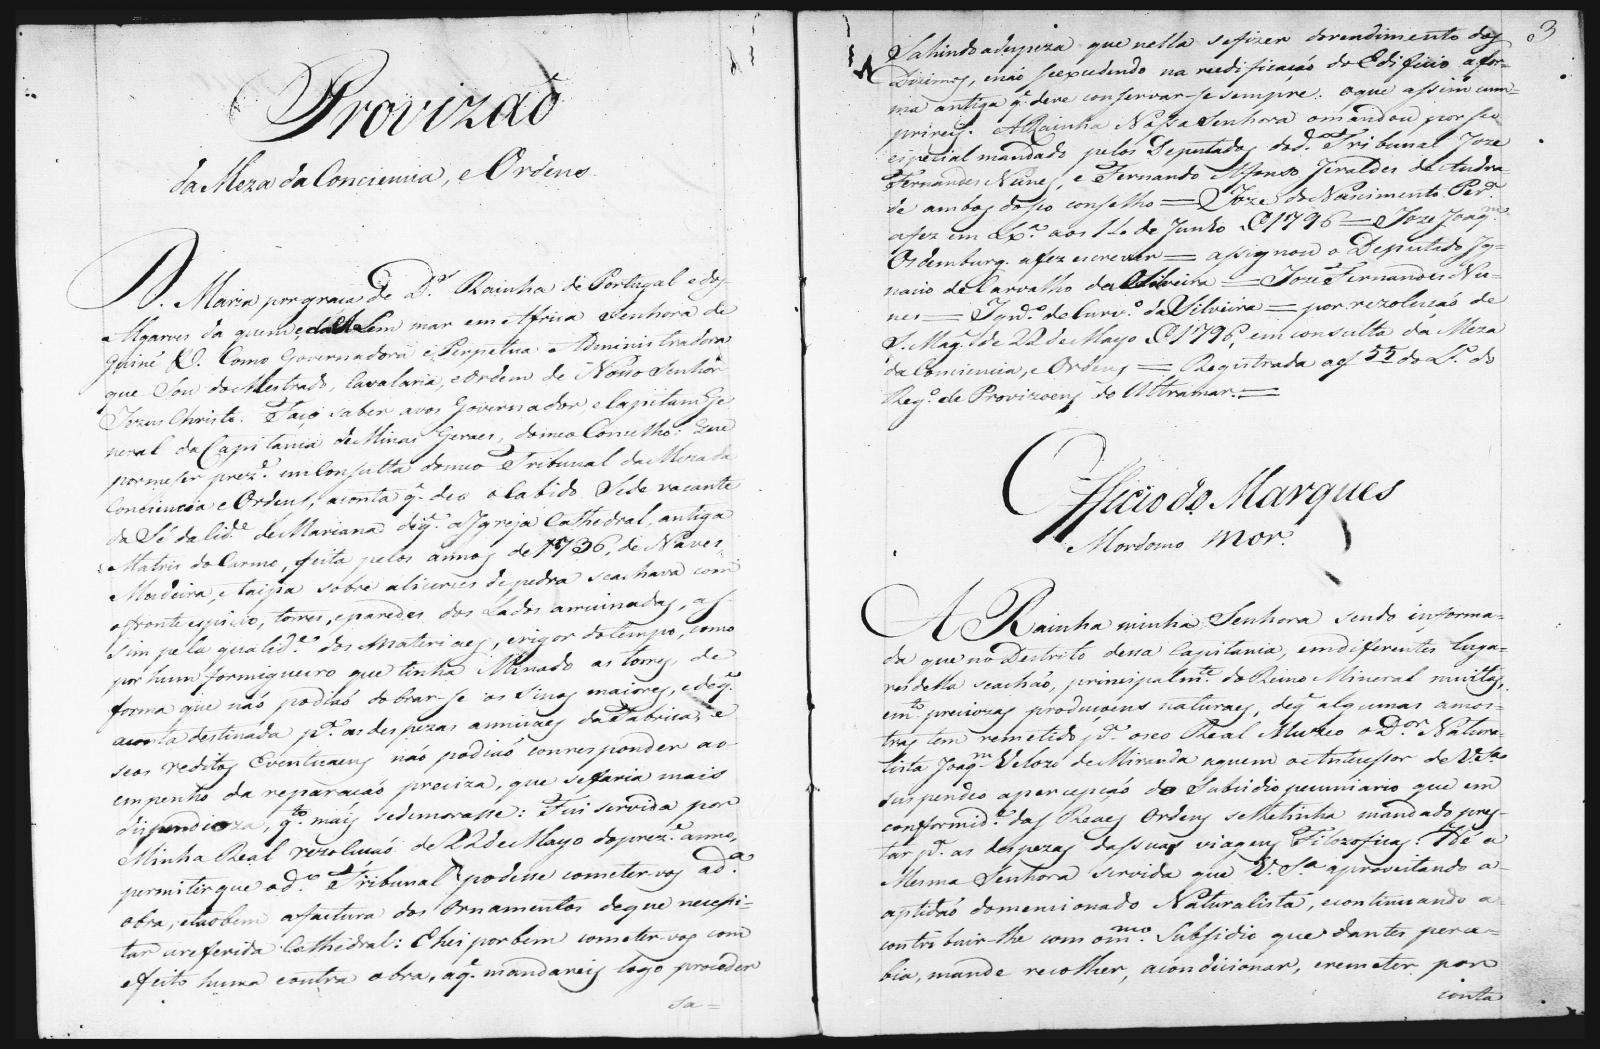 Provizaõ
da Meza da Conciencia, e Ordens.
D. Maria por graça de D.s Rainha de Portugal e dos
Algarves da quem, e dalem mar em Africa Senhora de
Guiné &. Como Governadora e Perpetua Administradora
que Sou do Mestrado, Cavalaria, e Ordem de Nosso Senhor
Jezus Christo. Faço saber avos Governador, e Capitam Ge
neral da Capitania de Minas Geraes, do meo Conselho: Que
por me ser prez.e em Consulta do meo Tribunal da Meza da
Conciencia e Ordens, aconta q. deo o Cabido Sede vacante
da Sé da Cid.e de Mariana deq. a Igreja Cathedral, antiga
Matris do Carmo, feita pelos annos de 1736, de Naves,
Madeira, etaipa sobre alicerces de pedra se achava com
o frontespicio, torres, e paredes dos Lados arruinadas, as
sim pela qualid.e dos Materiaes, erigor do tempo, como
por hum formigueiro que tinha Minado as torres, de
forma que naõ podiaõ dobrar-se os Sinos maiores, e deq.
aconta destinada p.a as despezas annuaes da Fabrica, e
seos reditos Eventuaens naõ podiaõ conresponder ao
empenho da reparacaõ preciza, que se faria mais
dispendioza, q.to mais sedemorasse: Fui servida por
Minha Real rezolucaõ de 22 de Mayo do prez.e anno,
permitir que o d.o Tribunal podesse cometer-vos a d.a
obra, etaobem afactura dos Ornamentos deque necessi-
tar a referida Cathedral: E hei por bem cometer-vos com
efeito huma e outra obra, aq. mandareis logo proceder
sa=
3
Sahindo a despeza que nella se fizer do rendimento dos
Dizimos, e naõ se excedendo na reedificaçaõ do Edificio a for-
ma antiga q. deve conservar-se sempre. o que assim cum-
prireis. A Rainha Nossa Senhora o mandou por seo
especial mandado pelos Deputados do d.o Tribunal Joze
Fernandes Nunes, e Fernando Afonso Geraldes de Andra-
de ambos do seo conselho = Joze do Nascimento Per.a
afez em Lx.a aos 14 de Junho de 1796 = Joze Joaq.m
Osdemburg. a fez escrever = assignou o Deputado Ig-
nacio de Carvalho da Silveira = Joze Fernandes Nu-
nes = Ign.o de Carv.o da Silveira = por rezolucaõ de
S. Mag.de de 22 de Mayo de 1796, em consulta da Meza
da Conciencia, e Ordens = Registrada a f 55 do L.o do
Reg.o de Provizoens do Ultramar. =
Officio do Marques
Mordomo Mor.
A Rainha minha Senhora sendo informa-
da que no Destrito dessa Capitania, em diferentes luga-
res della se achaõ, principalm.te do Reino Mineral muitas,
em.to preciozas produçoens naturaes, deq. algumas amos-
tras tem remetido p.a o seo Real Muzeo o D.or Natura-
lista Joaq.m Vellozo de Miranda aquem o Antecessor de V.S.a
suspendeo a percepçaõ do Subsidio pecuniario que em
conformid.e das Reaes Ordens se lhe tinha mandado pres-
tar p.a as despezas das suas viagens Filozoficas. Hé a
Mesma Senhora servida que V. S.a aproveitando a
aptidaõ do mencionado Naturalista, e continuando a
contribuir-lhe com o m.mo Subsidio que dantes perce-
bia, mande recolher, acondicionar, e remeter por
conta